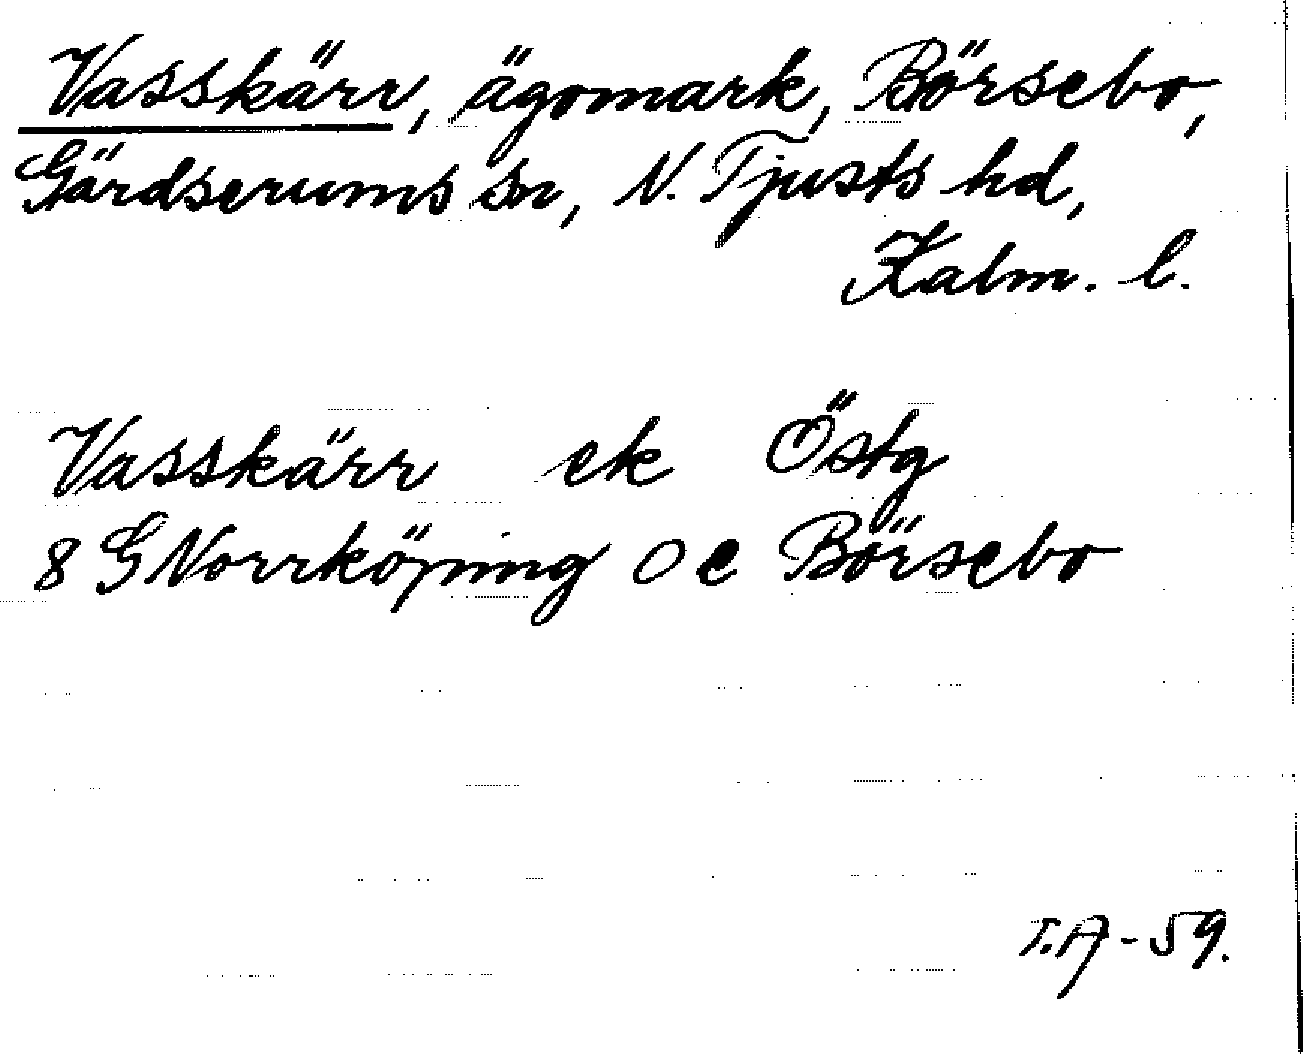 Vasskärr, ägomark, Börsebo,
Gärdserums sn, N. Tjusts hd,
Kalm. l.
Vasskärr ek Östg
8 G Norrköping O e Börsebo
T.A-59.